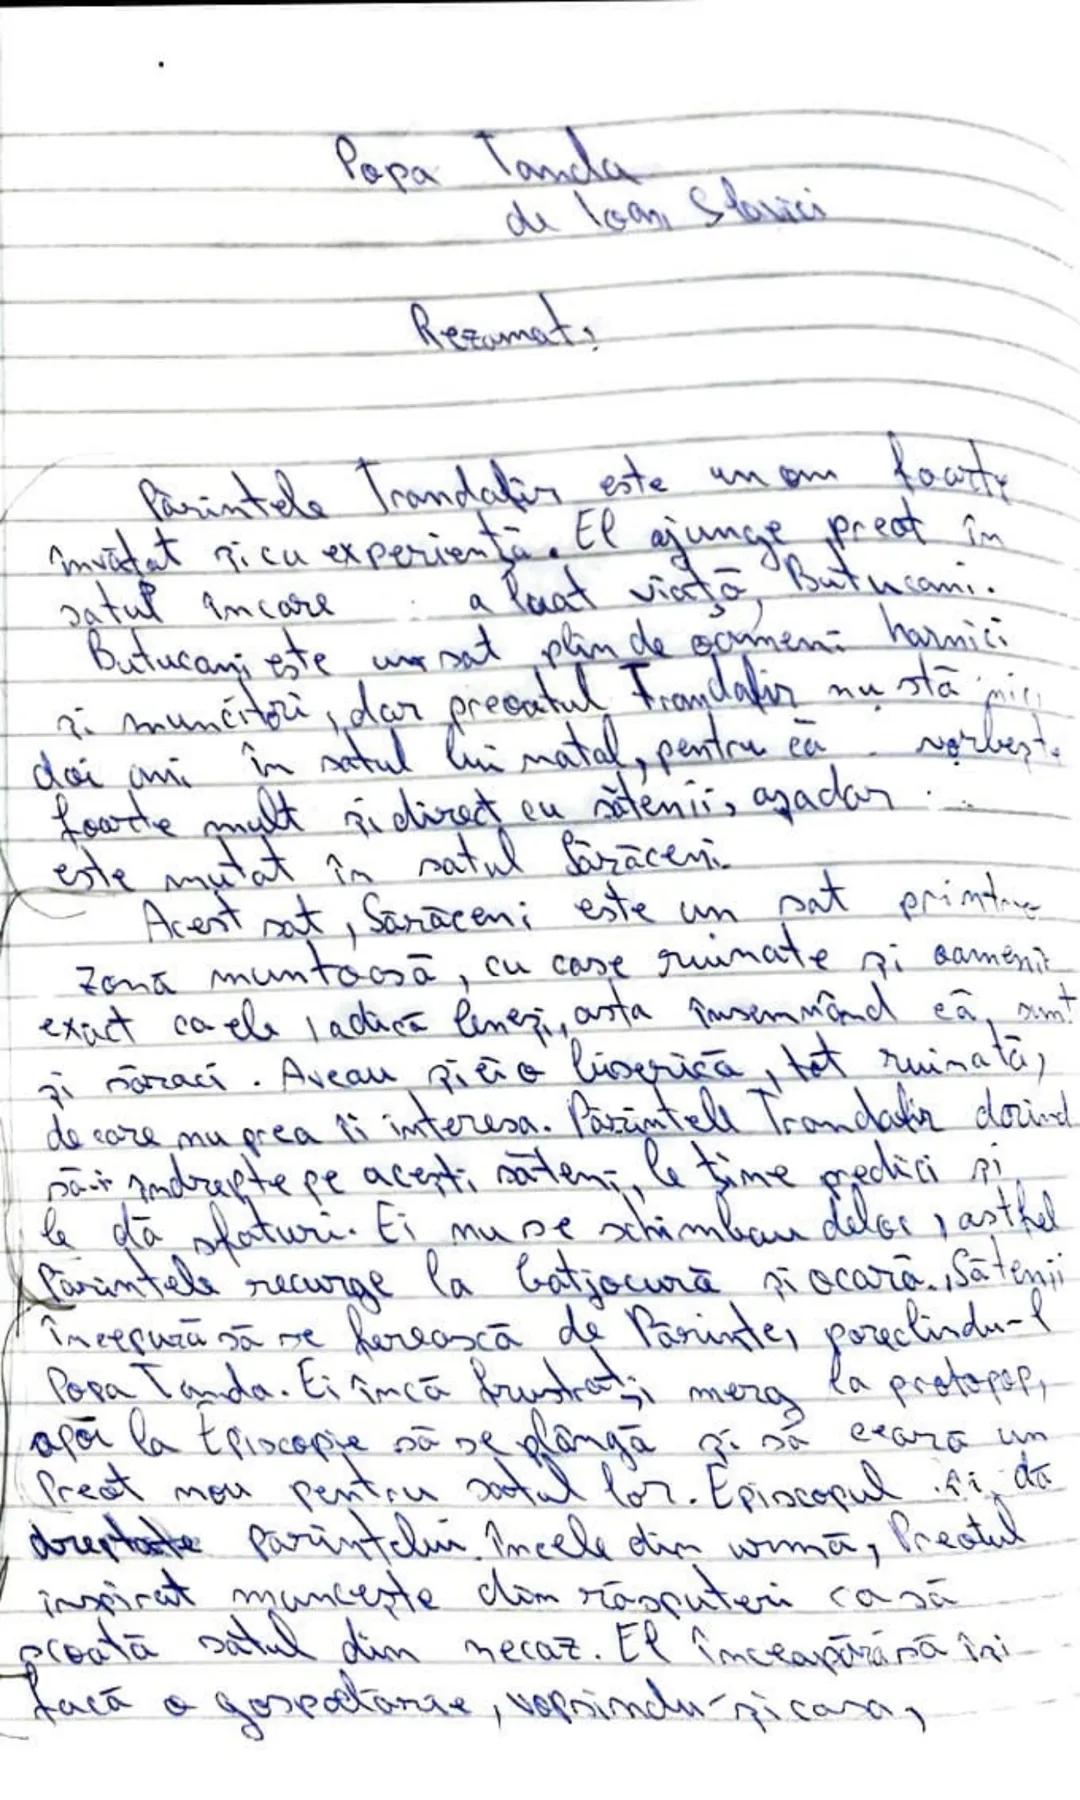 Popa Tanda
de Ioan Slavici
Rezumat,
Părintele Trandafir este un om foarte
învățat și cu experiență. El ajunge preot în
satul în care a luat viață, Butucani.
Butucani este un sat plin de oameni harnici
și muncitori, dar preoatul Trandafir nu stă nici
doi ani în satul lui natal, pentru că vorbește
foarte mult și direct cu sătenii, așadar
este mutat în satul Sărăceni.
Acest sat, Sărăceni este un sat printre
zonă muntoasă, cu case ruinate și oamenii
exact ca ele, adică leneși, asta însemnând că sunt
și săraci. Aveau și ei o biserică, tot ruinată,
de care nu prea îi interesa. Părintele Trandafir dorind
să-i îndrepte pe acești săteni, le ține predici și
le dă sfaturi. Ei nu se schimbau deloc, astfel
Părintele recurge la batjocură și ocară. Sătenii
începură să se ferească de Părinte, poreclindu-l
Popa Tanda. Ei încă frustrați merg la protopop,
apoi la Episcopie să se plângă și să ceară un
Preot nou pentru satul lor. Episcopul îi dă
dreptate părintelui. În cele din urmă, Preotul
inspirat muncește din răsputeri ca să
scoată satul din necaz. El începără să își
facă o gospodărie, vopsindu-și casa,